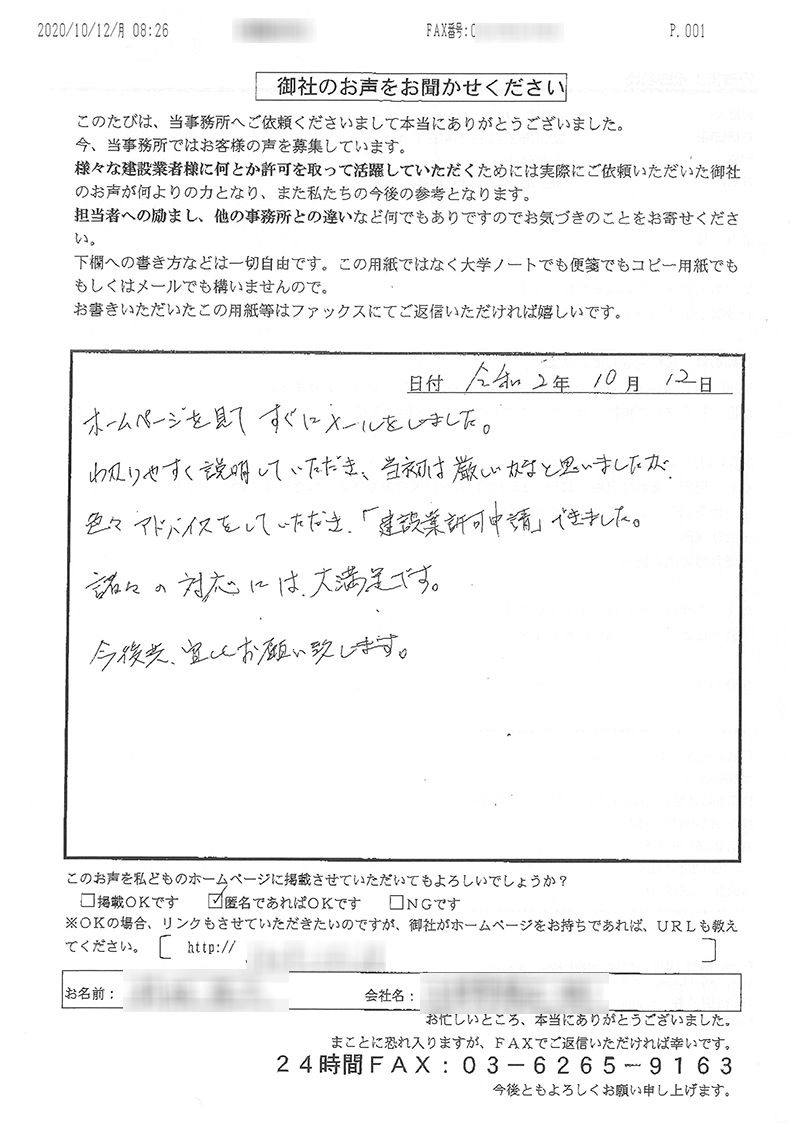 2020/10/12/月 08:26 FAX番号: P.001
御社のお声をお聞かせください
このたびは、当事務所へご依頼くださいまして本当にありがとうございました。
今、当事務所ではお客様の声を募集しています。
様々な建設業者様に何とか許可を取って活躍していただくためには実際にご依頼いただいた御社
のお声が何よりの力となり、また私たちの今後の参考となります。
担当者への励まし、他の事務所との違いなど何でもありですのでお気づきのことをお寄せくださ
い。
下欄への書き方などは一切自由です。この用紙ではなく大学ノートでも便箋でもコピー用紙でも
もしくはメールでも構いませんので。
お書きいただいたこの用紙等はファックスにてご返信いただければ嬉しいです。
日付 令和2年 10月 12日
ホームページを見て すぐにメールをしました。
わかりやすく説明していただき、当初は厳しいかなと思いましたが
色々アドバイスをしていただき、「建設業許可申請」できました。
諸々の対応には、大満足です。
今後共、宜しくお願い致します。
このお声を私どものホームページに掲載させていただいてもよろしいでしょうか?
□掲載OKです ☑匿名であればOKです □NGです
※OKの場合、リンクもさせていただきたいのですが、御社がホームページをお持ちであれば、URLも教え
てください。[ http:// ]
お名前: 会社名:
お忙しいところ、本当にありがとうございました。
まことに恐れ入りますが、FAXでご返信いただければ幸いです。
24時間FAX:03-6265-9163
今後ともよろしくお願い申し上げます。